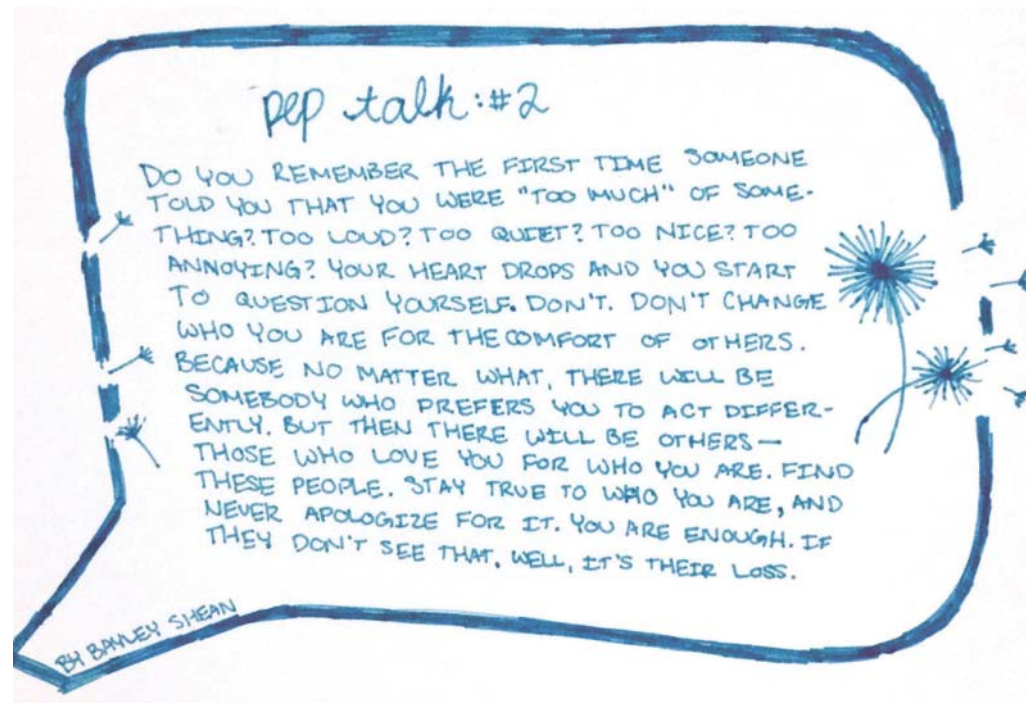 pep talk: #2
DO YOU REMEMBER THE FIRST TIME SOMEONE
TOLD YOU THAT YOU WERE "TOO MUCH" OF SOME-
THING? TOO LOUD? TOO QUIET? TOO NICE? TOO
ANNOYING? YOUR HEART DROPS AND YOU START
TO QUESTION YOURSELF. DON'T. DON'T CHANGE
WHO YOU ARE FOR THE COMFORT OF OTHERS.
BECAUSE NO MATTER WHAT, THERE WILL BE
SOMEBODY WHO PREFERS YOU TO ACT DIFFER-
ENTLY. BUT THEN THERE WILL BE OTHERS—
THOSE WHO LOVE YOU FOR WHO YOU ARE. FIND
THESE PEOPLE. STAY TRUE TO WHO YOU ARE, AND
NEVER APOLOGIZE FOR IT. YOU ARE ENOUGH. IF
THEY DON'T SEE THAT, WELL, IT'S THEIR LOSS.
BY BAYLEY SHEAN